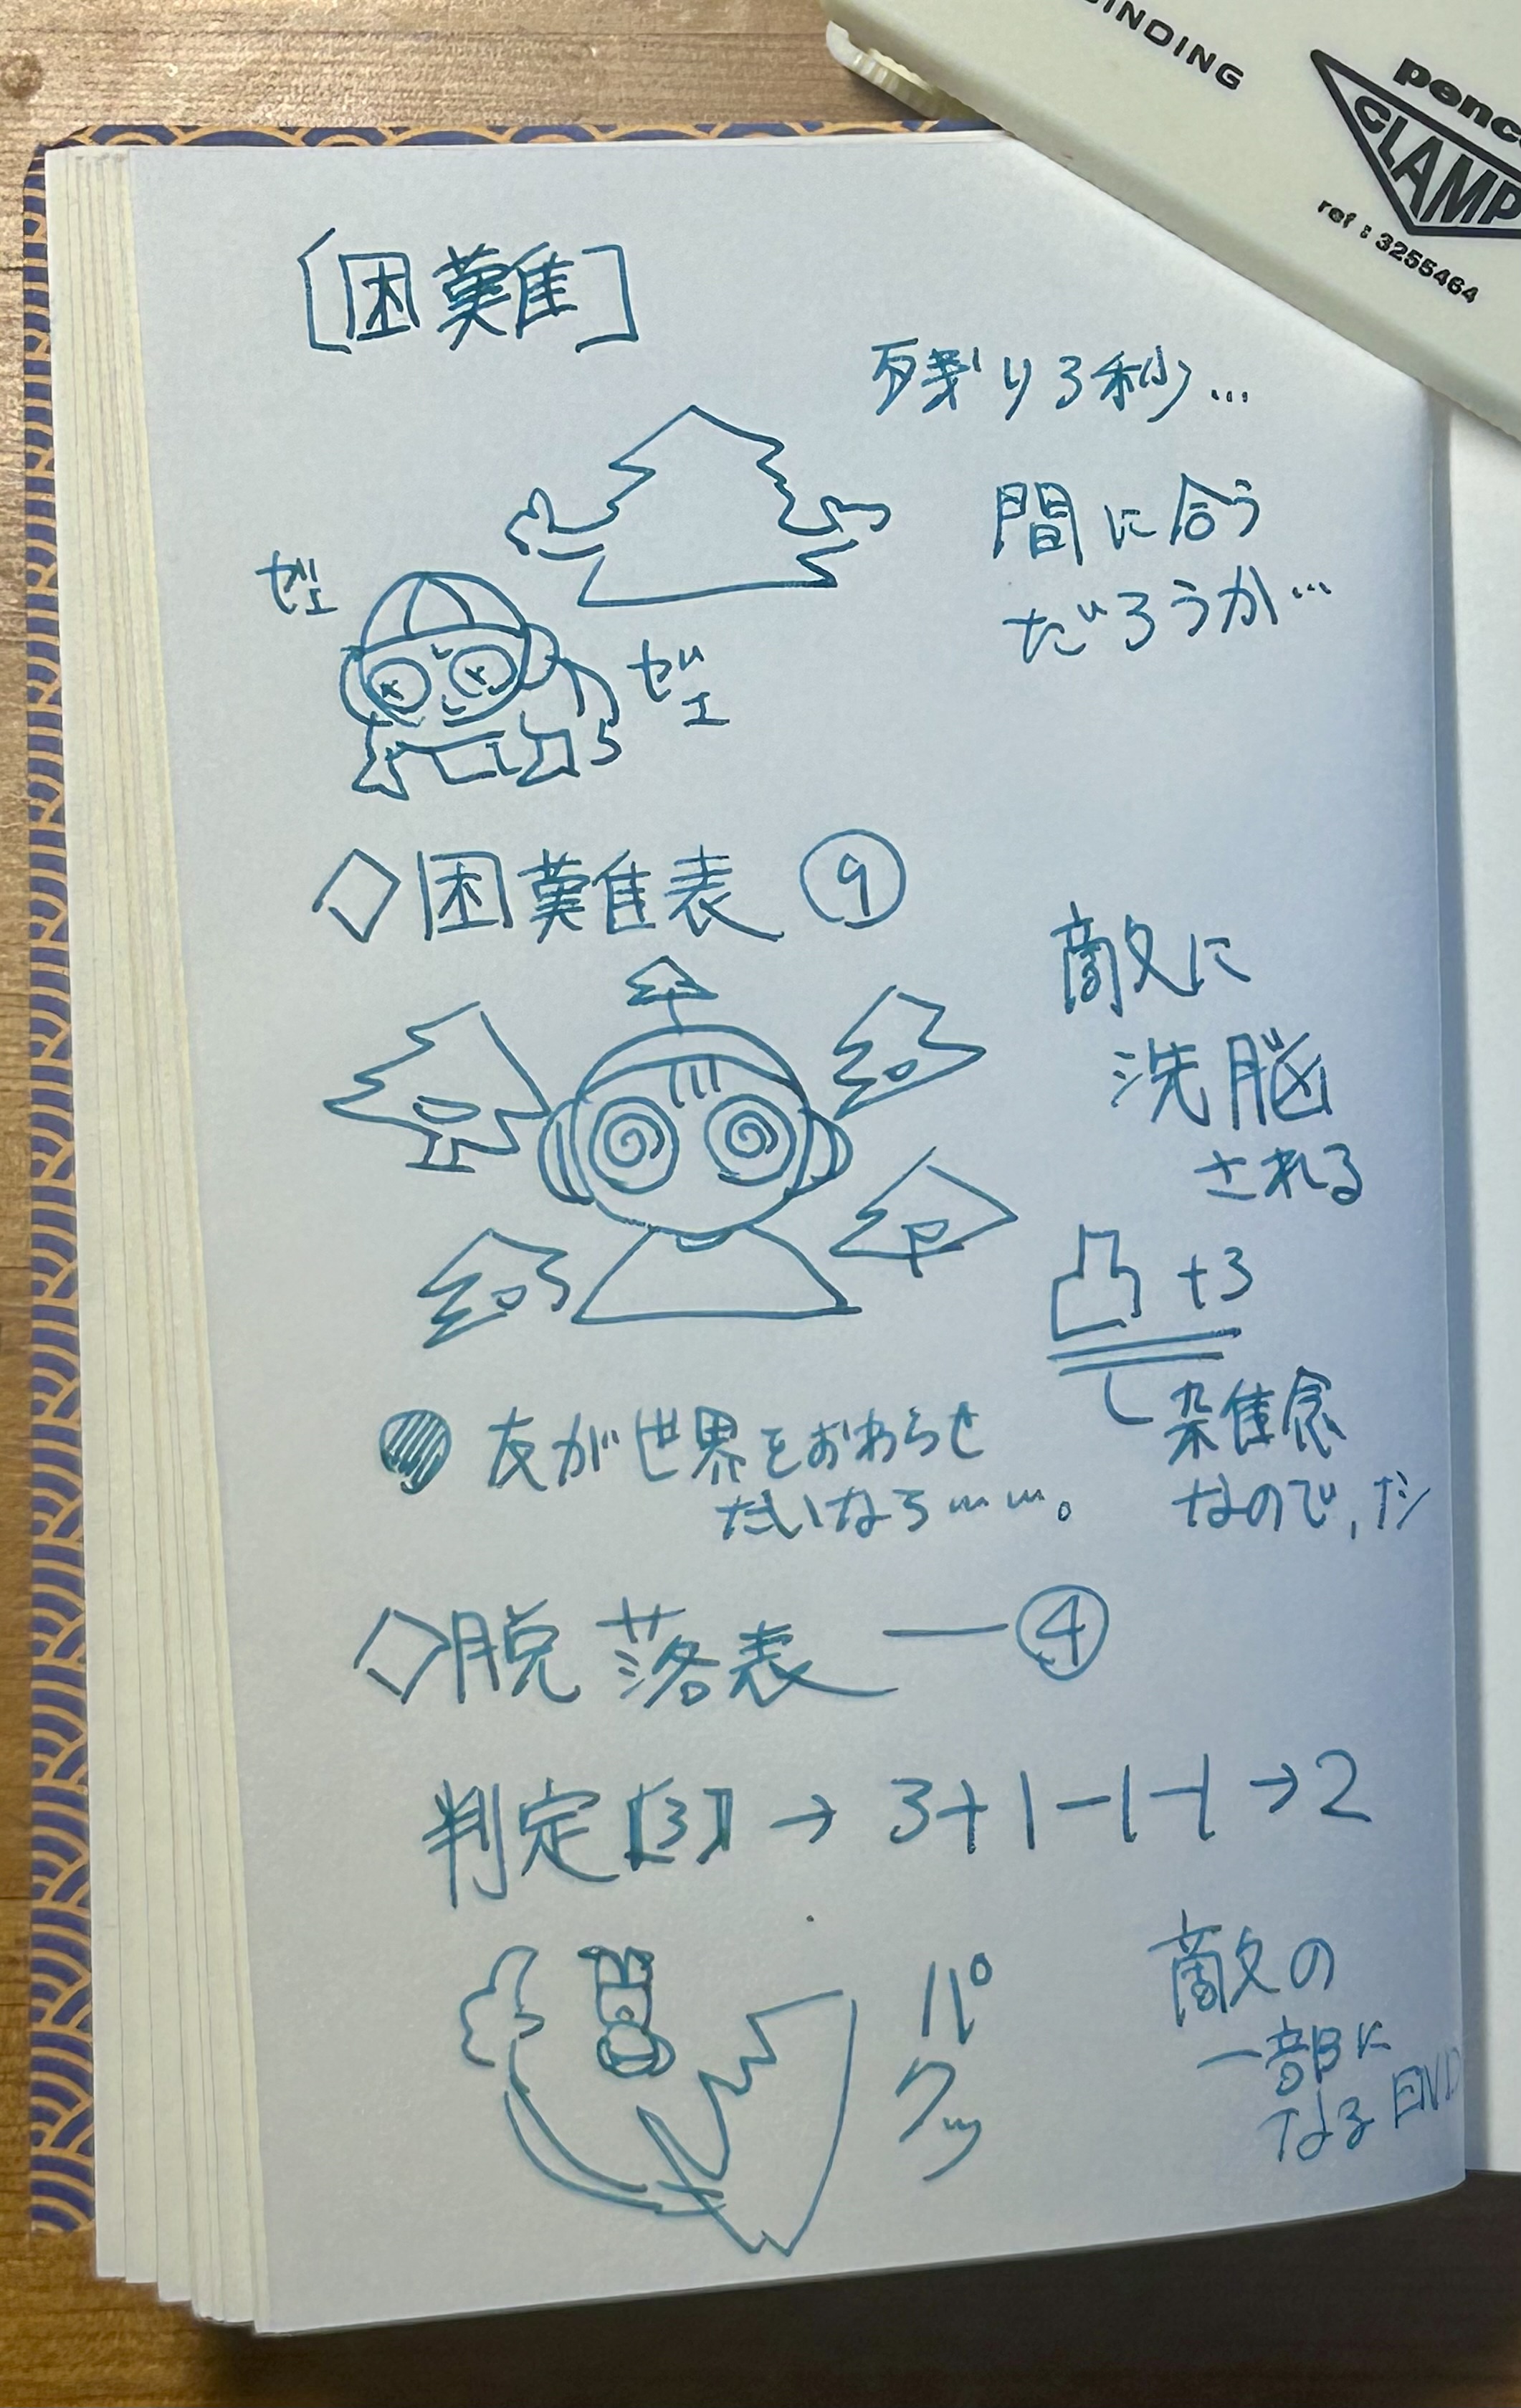 BINDING
CLAMP
ref : 3255464
[困難]
残り3秒…
間に合う
だろうか…
ゼェ
ゼェ
◇困難表 ⑨
敵に
洗脳
される
凸 +3
雑念
なので,
友が世界をおわらせ
たいなら……。
◇脱落表 ― ④
判定[3] → 3+1-1-1 → 2
パクッ
敵の
一部に
なるEND